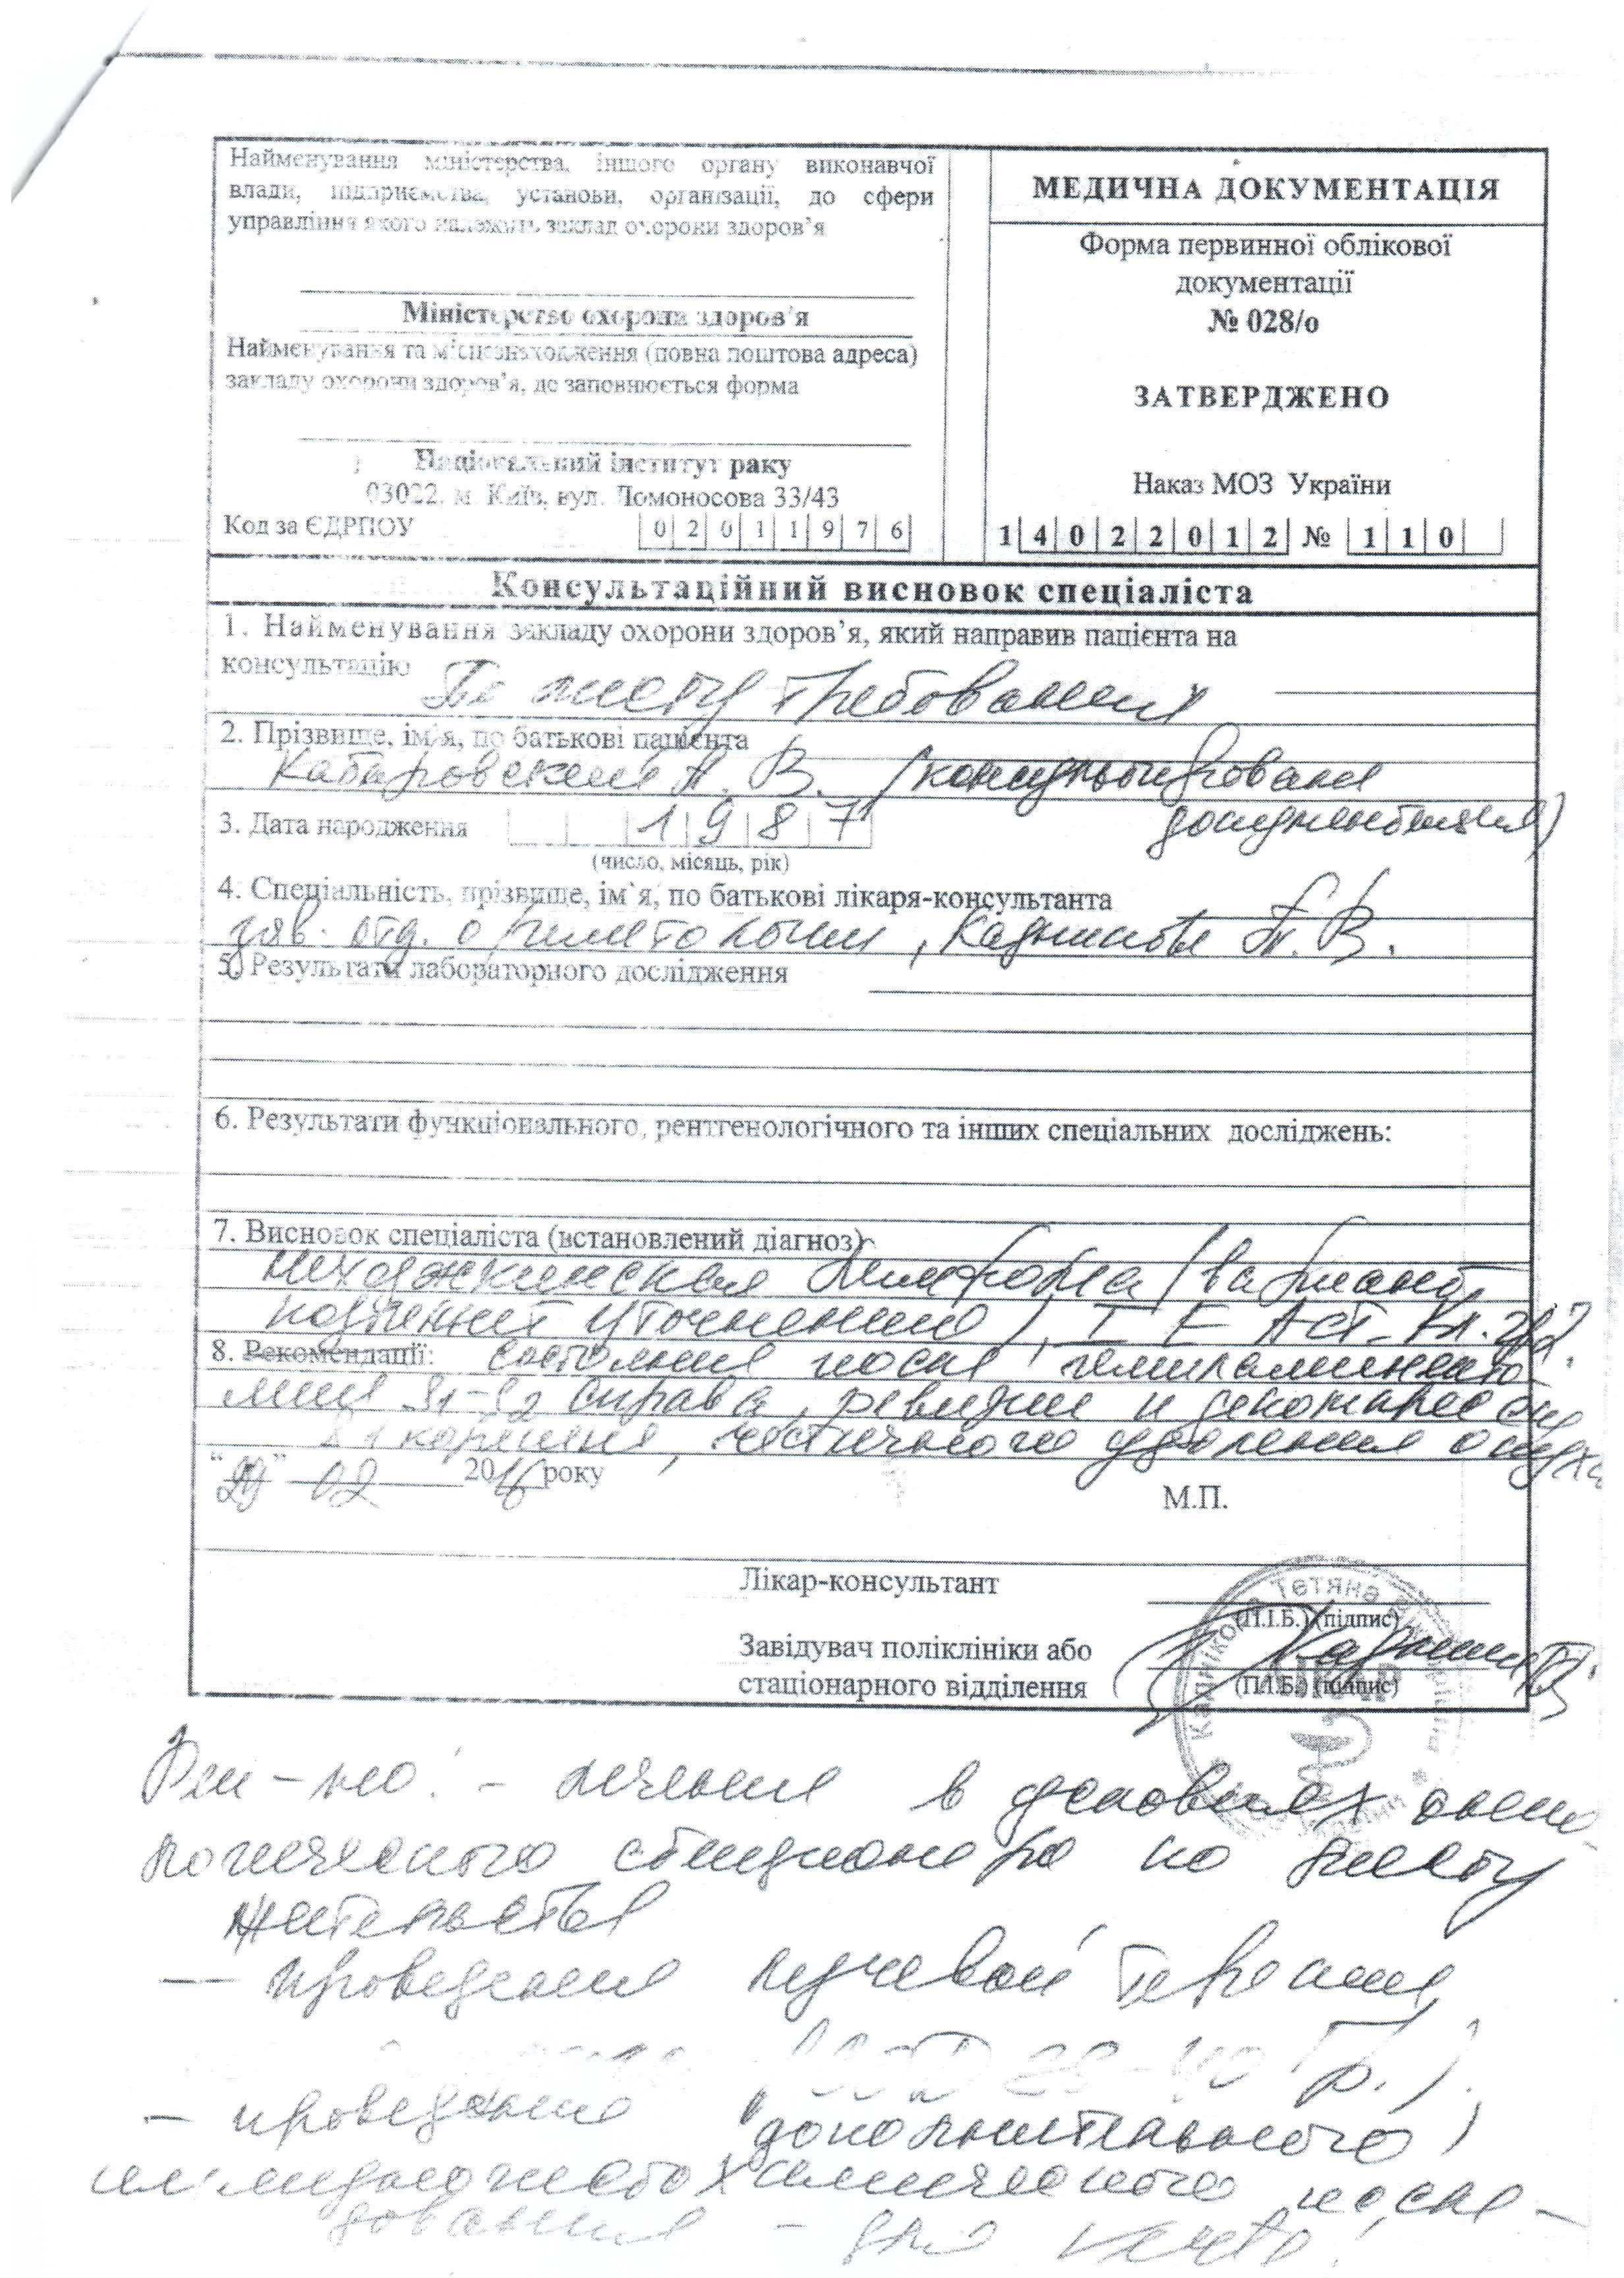 Найменування міністерства, іншого органу виконавчої
влади, підприємства, установи, організації, до сфери
управління якого належить заклад охорони здоров'я
Міністерство охорони здоров'я
Найменування та місцезнаходження (повна поштова адреса)
закладу охорони здоров'я, де заповнюється форма
Національний інститут раку
03022, м. Київ, вул. Ломоносова 33/43
Код за ЄДРПОУ 0 2 0 1 1 9 7 6
МЕДИЧНА ДОКУМЕНТАЦІЯ
Форма первинної облікової
документації
№ 028/о
ЗАТВЕРДЖЕНО
Наказ МОЗ України
1 4 0 2 2 0 1 2 № 1 1 0
Консультаційний висновок спеціаліста
1. Найменування закладу охорони здоров'я, який направив пацієнта на
консультацію По месту требования
2. Прізвище, ім'я, по батькові пацієнта
А. В. (консультирована
документация)
3. Дата народження 1 9 8 7
(число, місяць, рік)
4. Спеціальність, прізвище, ім'я, по батькові лікаря-консультанта
зав. отд. Т. В.
5. Результати лабораторного дослідження
6. Результати функціонального, рентгенологічного та інших спеціальних досліджень:
7. Висновок спеціаліста (встановлений діагноз)
неходжкинская лимфома (вариант
подлежит уточнению), I E ст. кл. гр.
8. Рекомендації: состояние после гемиламинэкто-
мии S1-S2 справа, ревизии и декомпрессии
S1 корешка, частичного удаления опухоли
"29" 02 2016 року
М.П.
Лікар-консультант
(П.І.Б.) (підпис)
Завідувач поліклініки або
стаціонарного відділення
(П.І.Б.) (підпис)
Тетяна
ЛІКАР
Рек-но: - лечение в условиях онко-
логического стационара по месту
жительства
— проведение лучевой терапии
Гр.).
- проведение дополнительного
иммуногистохимического иссле-
дования -